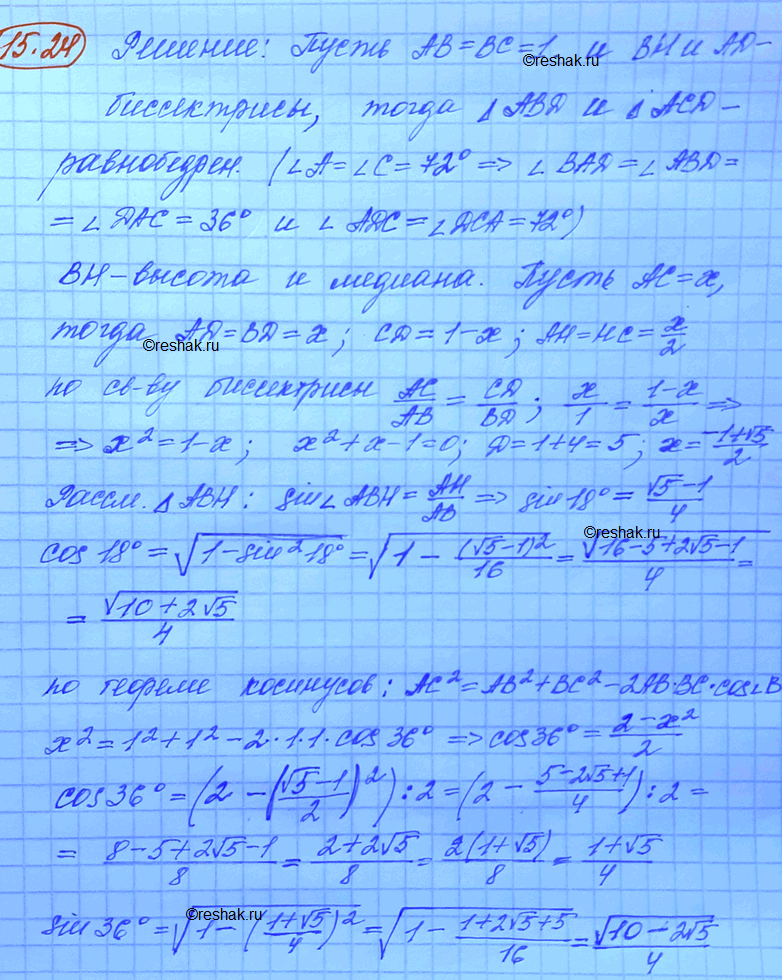 15.24 Решение: Пусть AB=BC=1 и BH и AD-
©reshak.ru
биссектрисы, тогда △ABD и △ACD -
равнобедрен. (∠A=∠C=72° => ∠BAD=∠ABD=
=∠DAC=36° и ∠ADC=∠DCA=72°)
BH-высота и медиана. Пусть AC=x,
тогда AD=BD=x; CD=1-x; AH=HC=x/2
©reshak.ru
по св-ву биссектрисы AC/AB = CD/BD; x/1 = (1-x)/x =>
=> x²=1-x; x²+x-1=0; D=1+4=5; x=(-1+√5)/2
Рассм. △ABH: sin∠ABH=AH/AB => sin18°=(√5-1)/4
©reshak.ru
cos18°=√(1-sin²18°)=√(1-(√5-1)²/16)=√(16-5+2√5-1)/4=
=√(10+2√5)/4
по теореме косинусов: AC²=AB²+BC²-2AB·BC·cos∠B
x²=1²+1²-2·1·1·cos36° => cos36°=(2-x²)/2
cos36°=(2-((√5-1)/2)²):2=(2-(5-2√5+1)/4):2=
=(8-5+2√5-1)/8=(2+2√5)/8=2(1+√5)/8=(1+√5)/4
©reshak.ru
sin36°=√(1-((1+√5)/4)²)=√(1-(1+2√5+5)/16)=√(10-2√5)/4